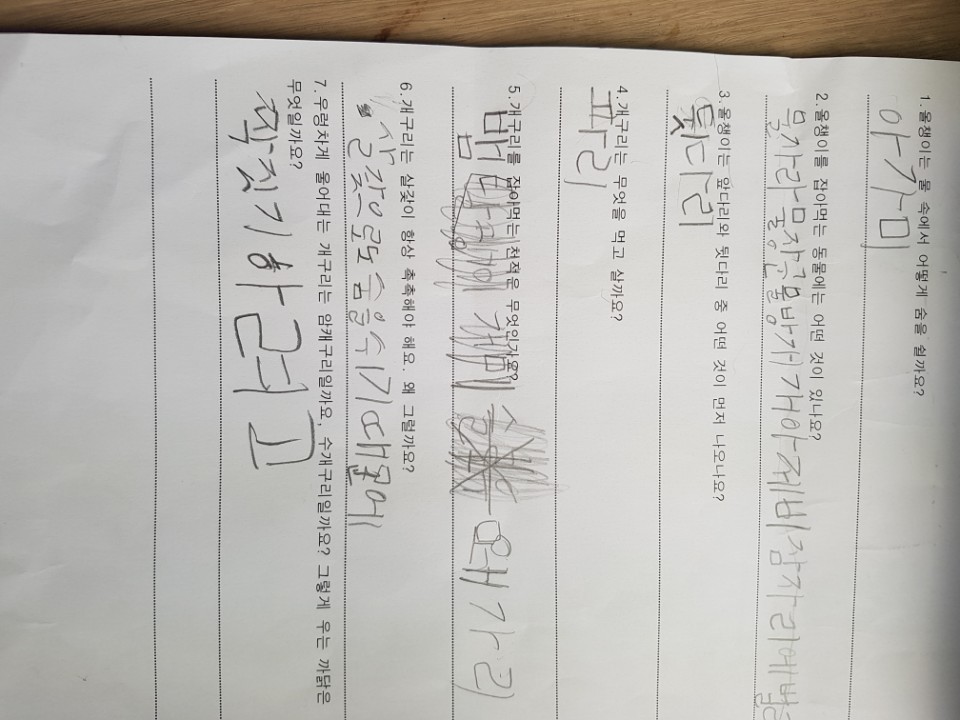 1. 올챙이는 물 속에서 어떻게 숨을 쉴까요?
아가미
2. 올챙이를 잡아먹는 동물에는 어떤 것이 있나요?
물장군물방개아제비잠자리에벌
3. 올챙이는 앞다리와 뒷다리 중 어떤 것이 먼저 나오나요?
뒷다리
4. 개구리는 무엇을 먹고 살까요?
파리
5. 개구리를 잡아먹는 천적은 무엇인가요?
뱀 왜가리
6. 개구리는 살갗이 항상 촉촉해야 해요. 왜 그럴까요?
살갗으로도숨을수기때문에
7. 우렁차게 울어대는 개구리는 암개구리일까요, 수개구리일까요? 그렇게 우는 까닭은
무엇일까요?
짝짓기하려고